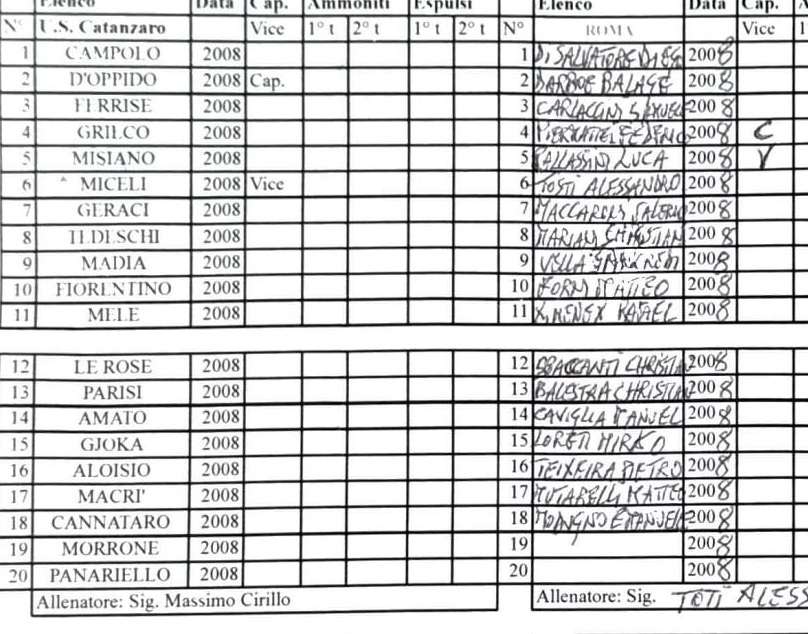 Elenco Data Cap. Ammoniti Espulsi Elenco Data Cap.
N° U.S. Catanzaro Vice 1° t 2° t 1° t 2° t N° ROMA Vice 1
1 CAMPOLO 2008 1 DI SALVATORE 2008
2 D'OPPIDO 2008 Cap. 2 DARBOE BALAGE 2008
3 FERRISE 2008 3 2008
4 GRILCO 2008 4 2008 C
5 MISIANO 2008 5 LUCA 2008 V
6 MICELI 2008 Vice 6 TOSTI ALESSANDRO 2008
7 GERACI 2008 7 2008
8 TEDESCHI 2008 8 MARIANI CHRISTIAN 2008
9 MADIA 2008 9 VELLA 2008
10 FIORENTINO 2008 10 MATTEO 2008
11 MELE 2008 11 2008
12 LE ROSE 2008 12 2008
13 PARISI 2008 13 BALESTRA CHRISTIAN 2008
14 AMATO 2008 14 CAVIGLIA MANUEL 2008
15 GJOKA 2008 15 LORETI MIRKO 2008
16 ALOISIO 2008 16 TEIXEIRA PIETRO 2008
17 MACRI' 2008 17 MUTARELLI MATTEO 2008
18 CANNATARO 2008 18 2008
19 MORRONE 2008 19 2008
20 PANARIELLO 2008 20 2008
Allenatore: Sig. Massimo Cirillo Allenatore: Sig. TOTI ALESS